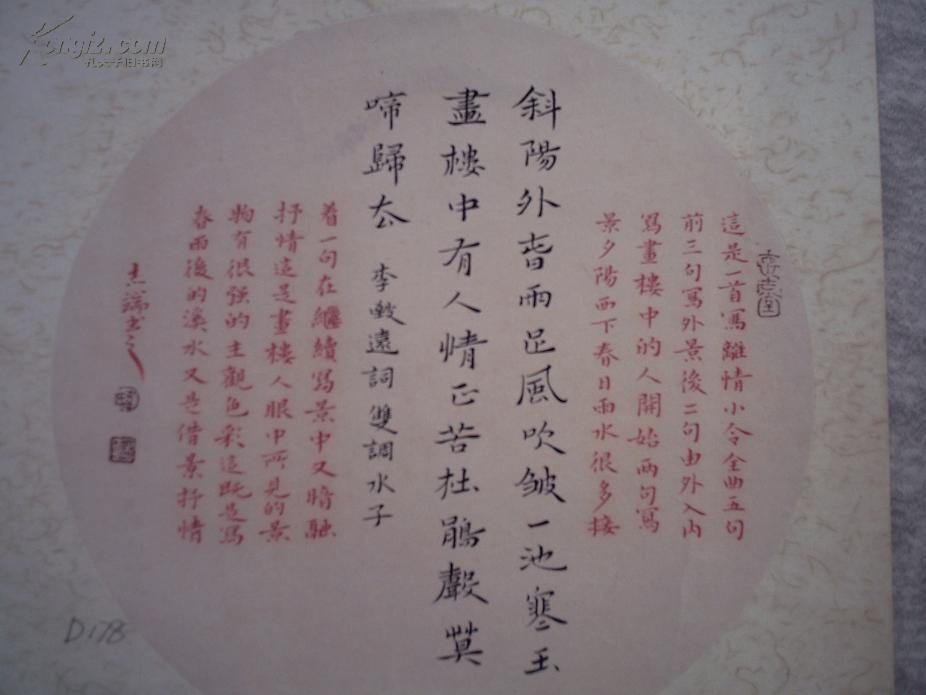 這是一首寫離情小令全曲五句
前三句寫外景後二句由外入內
寫畫樓中的人開始兩句寫
景夕陽西下春日雨水很多接
斜陽外春雨足風吹皱一池寒玉
畫樓中有人情正苦杜鵑聲莫
啼歸去
李致遠詞雙調水子
着一句在繼續寫景中又暗融
抒情這是畫樓人眼中所見的景
物有很强的主觀色彩這既是寫
春雨後的溪水又是借景抒情
志端書之
D178
Kongfz.com
孔夫子旧书网